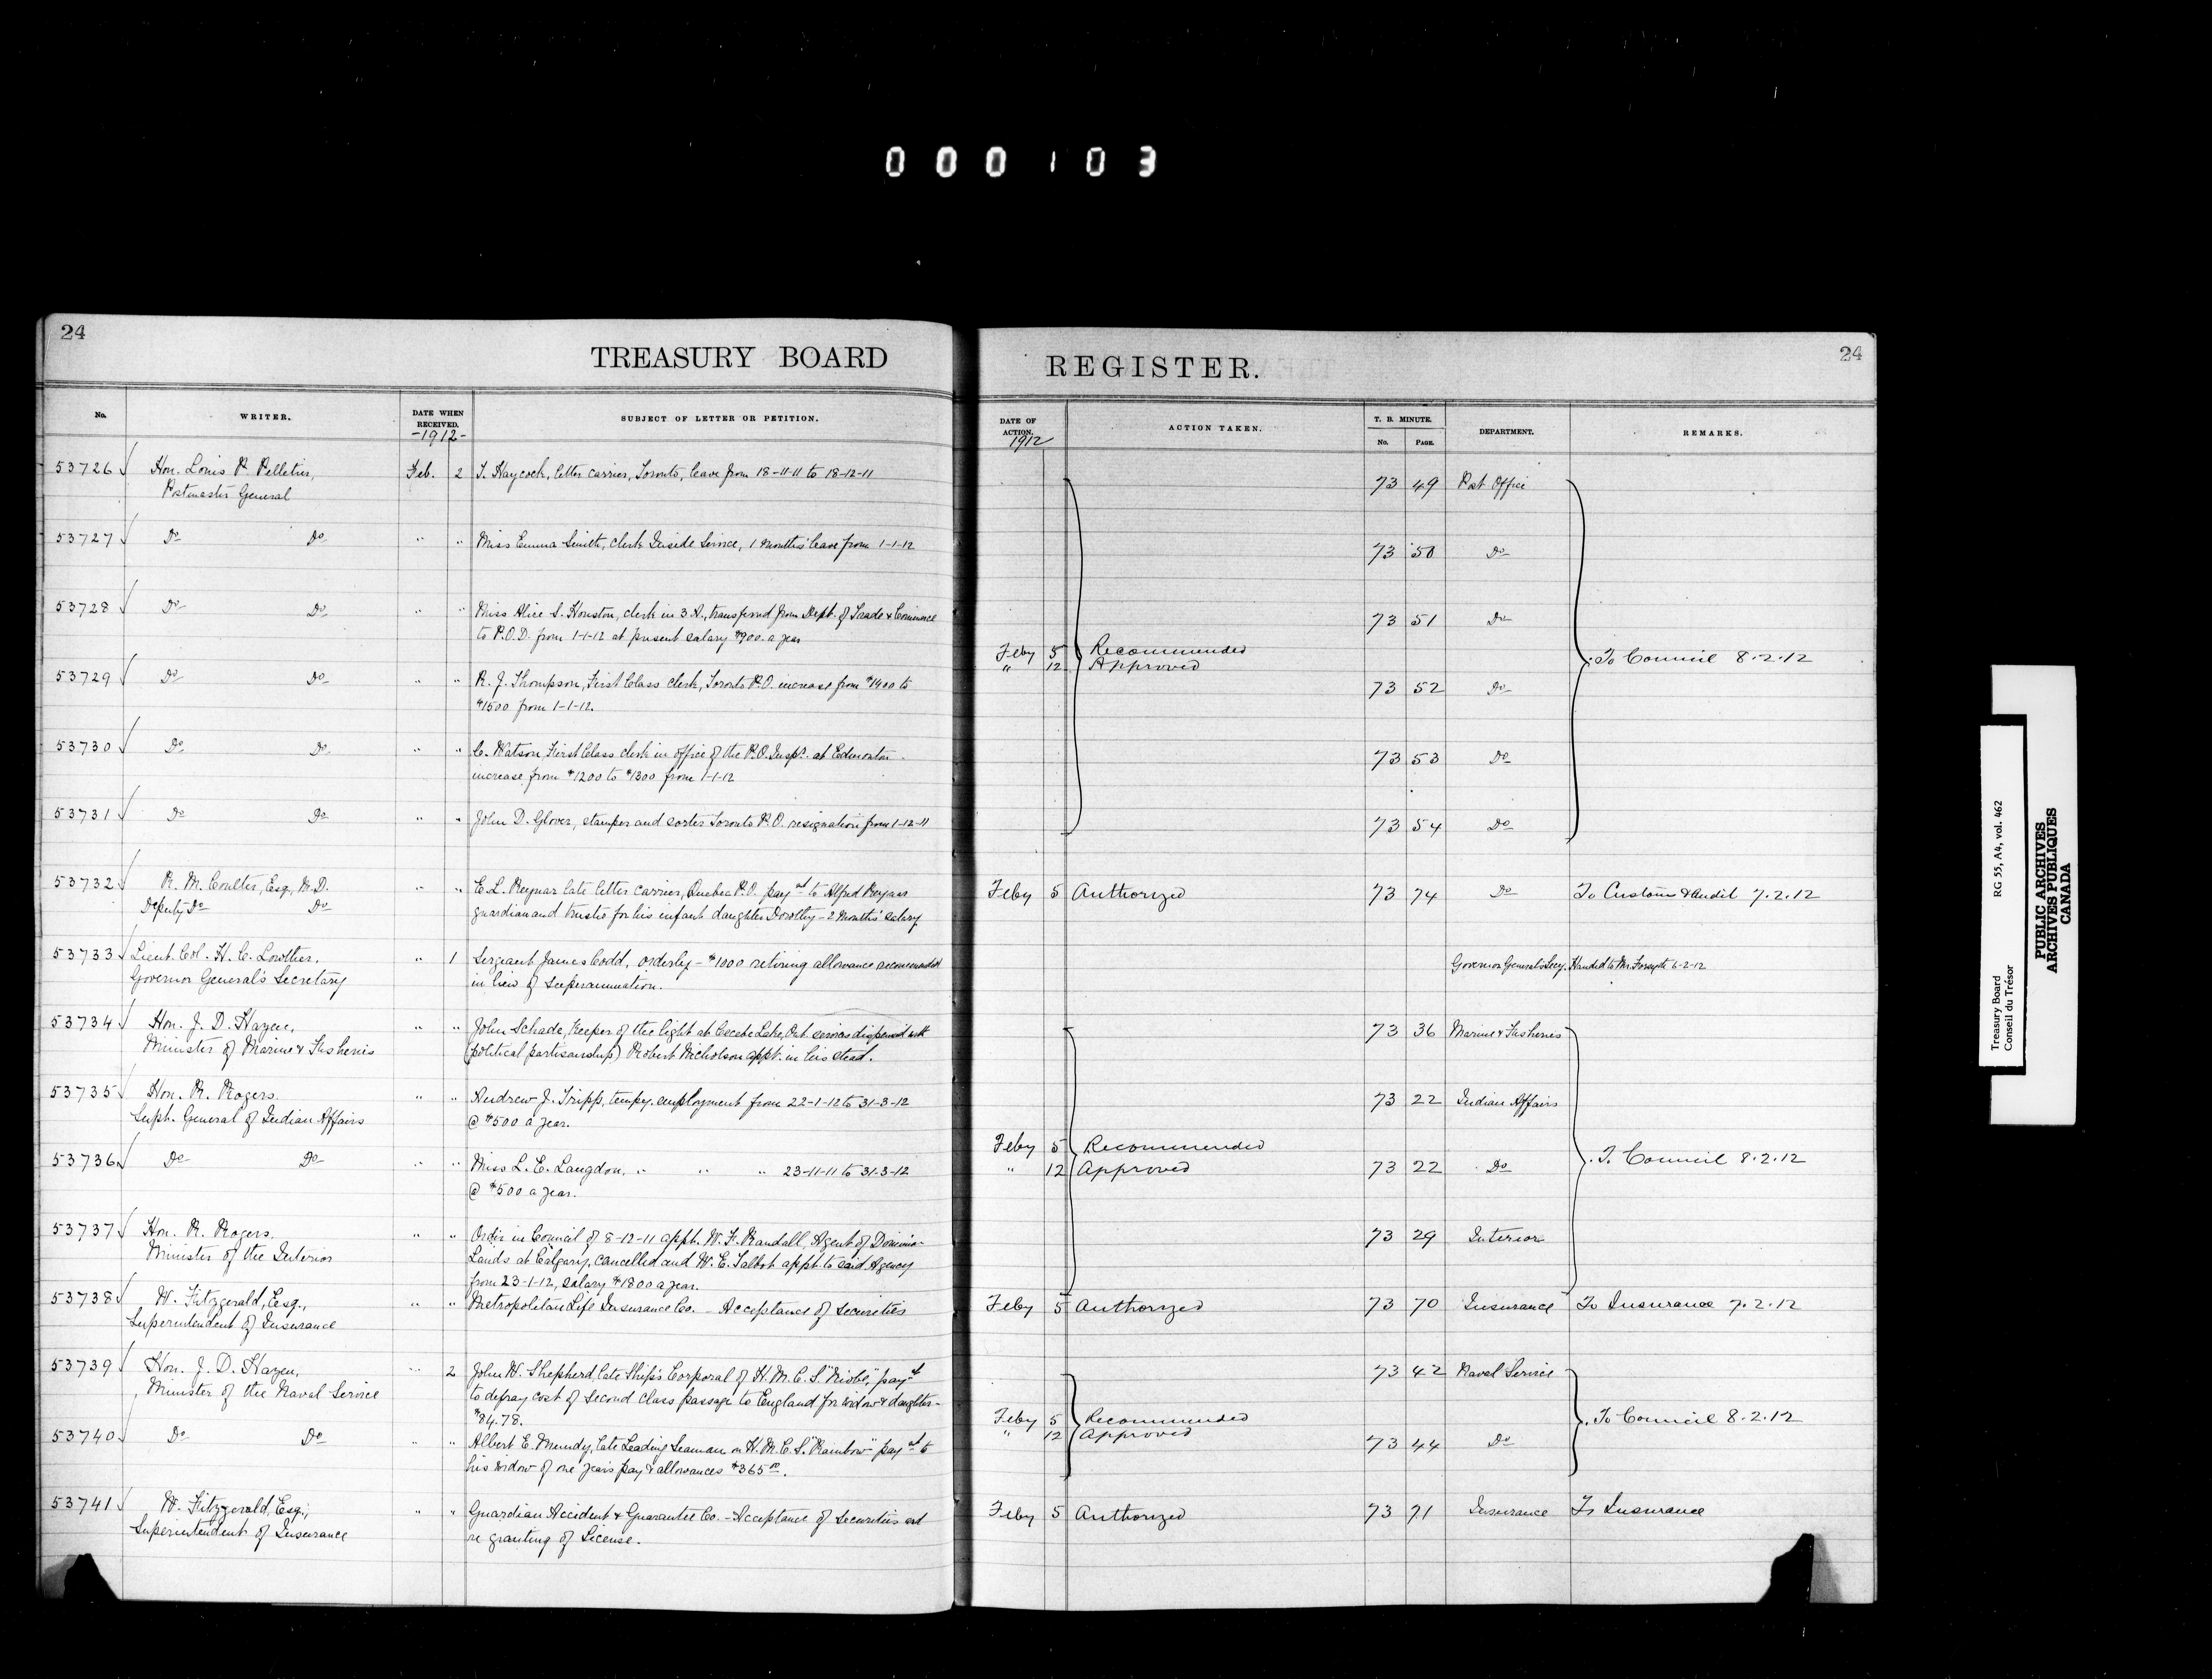 000103
24
TREASURY BOARD
No.
WRITER.
DATE WHEN RECEIVED.
-1912-
SUBJECT OF LETTER OR PETITION.
53726 Hon. Louis P. Pelletier, Feb. 2 T. Haycock, letter carrier, Toronto, leave from 18-11-11 to 18-12-11
Postmaster General
53727 Do Do " " Miss Emma Smith, clerk Inside Service, 1 months' leave from 1-1-12
53728 Do Do " " Miss Alice S. Houston, clerk in 3 A., transferred from Dept. of Trade & Commerce
to P.O.D. from 1-1-12 at present salary $900. a year
53729 Do Do " " R. J. Thompson, First Class clerk, Toronto P.O. increase from $1400 to
$1500 from 1-1-12.
53730 Do Do " " C. Watson, First Class clerk in office of the P.O. Insp. at Edmonton -
increase from $1200 to $1300 from 1-1-12
53731 Do Do " " John D. Glover, stamper and sorter Toronto P.O. resignation from 1-12-11
53732 R. M. Coulter, Esq., M.D. " " E. L. Reynar late letter carrier, Quebec P.O. payt to Alfred Reynar
Deputy Do Do guardian and trustee for his infant daughter Dorothy - 2 months' salary
53733 Lieut. Col. H. C. Lowther, " 1 Sergeant James Codd, orderly - $1000 retiring allowance recommended
Governor General's Secretary in lieu of superannuation.
53734 Hon. J. D. Hazen, " " John Schade, Keeper of the light at Cecebe Lake, Ont. services dispensed with
Minister of Marine & Fisheries (political partisanship) Robert Nicholson appt. in his stead.
53735 Hon. R. Rogers. " " Andrew J. Tripp, tempy. employment from 22-1-12 to 31-3-12
Supt. General of Indian Affairs @ $500 a year.
53736 Do Do " " Miss L. E. Langdon, " " " 23-11-11 to 31-3-12
@ $500 a year.
53737 Hon. R. Rogers. " " Order in Council of 8-12-11 appt. W. F. Randall, Agent of Dominion
Minister of the Interior Lands at Calgary, cancelled and W. E. Talbot appt. to said Agency
from 23-1-12, salary $1800 a year.
53738 W. Fitzgerald, Esq., " " Metropolitan Life Insurance Co. - Acceptance of securities
Superintendent of Insurance
53739 Hon. J. D. Hazen, " 2 John W. Shepherd, late Ship's Corporal of H.M.C.S. "Niobe," payt
Minister of the Naval Service to defray cost of second class passage to England for widow & daughter -
$84.78.
53740 Do Do " " Albert E. Mundy, late Leading Seaman on H.M.C.S. "Rainbow" payt to
his widow of one year's pay & allowances $365.00.
53741 W. Fitzgerald, Esq., " " Guardian Accident & Guarantee Co. - Acceptance of securities and
Superintendent of Insurance re granting of License.
REGISTER.
24
DATE OF ACTION.
1912
ACTION TAKEN.
T. B. MINUTE.
No. PAGE.
DEPARTMENT.
REMARKS.
73 49 Post Office
73 50 Do
73 51 Do
Feby 5 Recommended
" 12 Approved To Council 8.2.12
73 52 Do
73 53 Do
73 54 Do
Feby 5 Authorized 73 74 Do To Customs & Audit 7.2.12
Governor General's Secy. Handed to Mr. Forsyth 6-2-12
73 36 Marine & Fisheries
73 22 Indian Affairs
Feby 5 Recommended
" 12 Approved 73 22 Do To Council 8.2.12
73 29 Interior
Feby 5 Authorized 73 70 Insurance To Insurance 7.2.12
73 42 Naval Service
Feby 5 Recommended To Council 8.2.12
" 12 Approved
73 44 Do
Feby 5 Authorized 73 71 Insurance To Insurance
Treasury Board RG 55, A4, vol. 462
Conseil du Trésor
PUBLIC ARCHIVES
ARCHIVES PUBLIQUES
CANADA